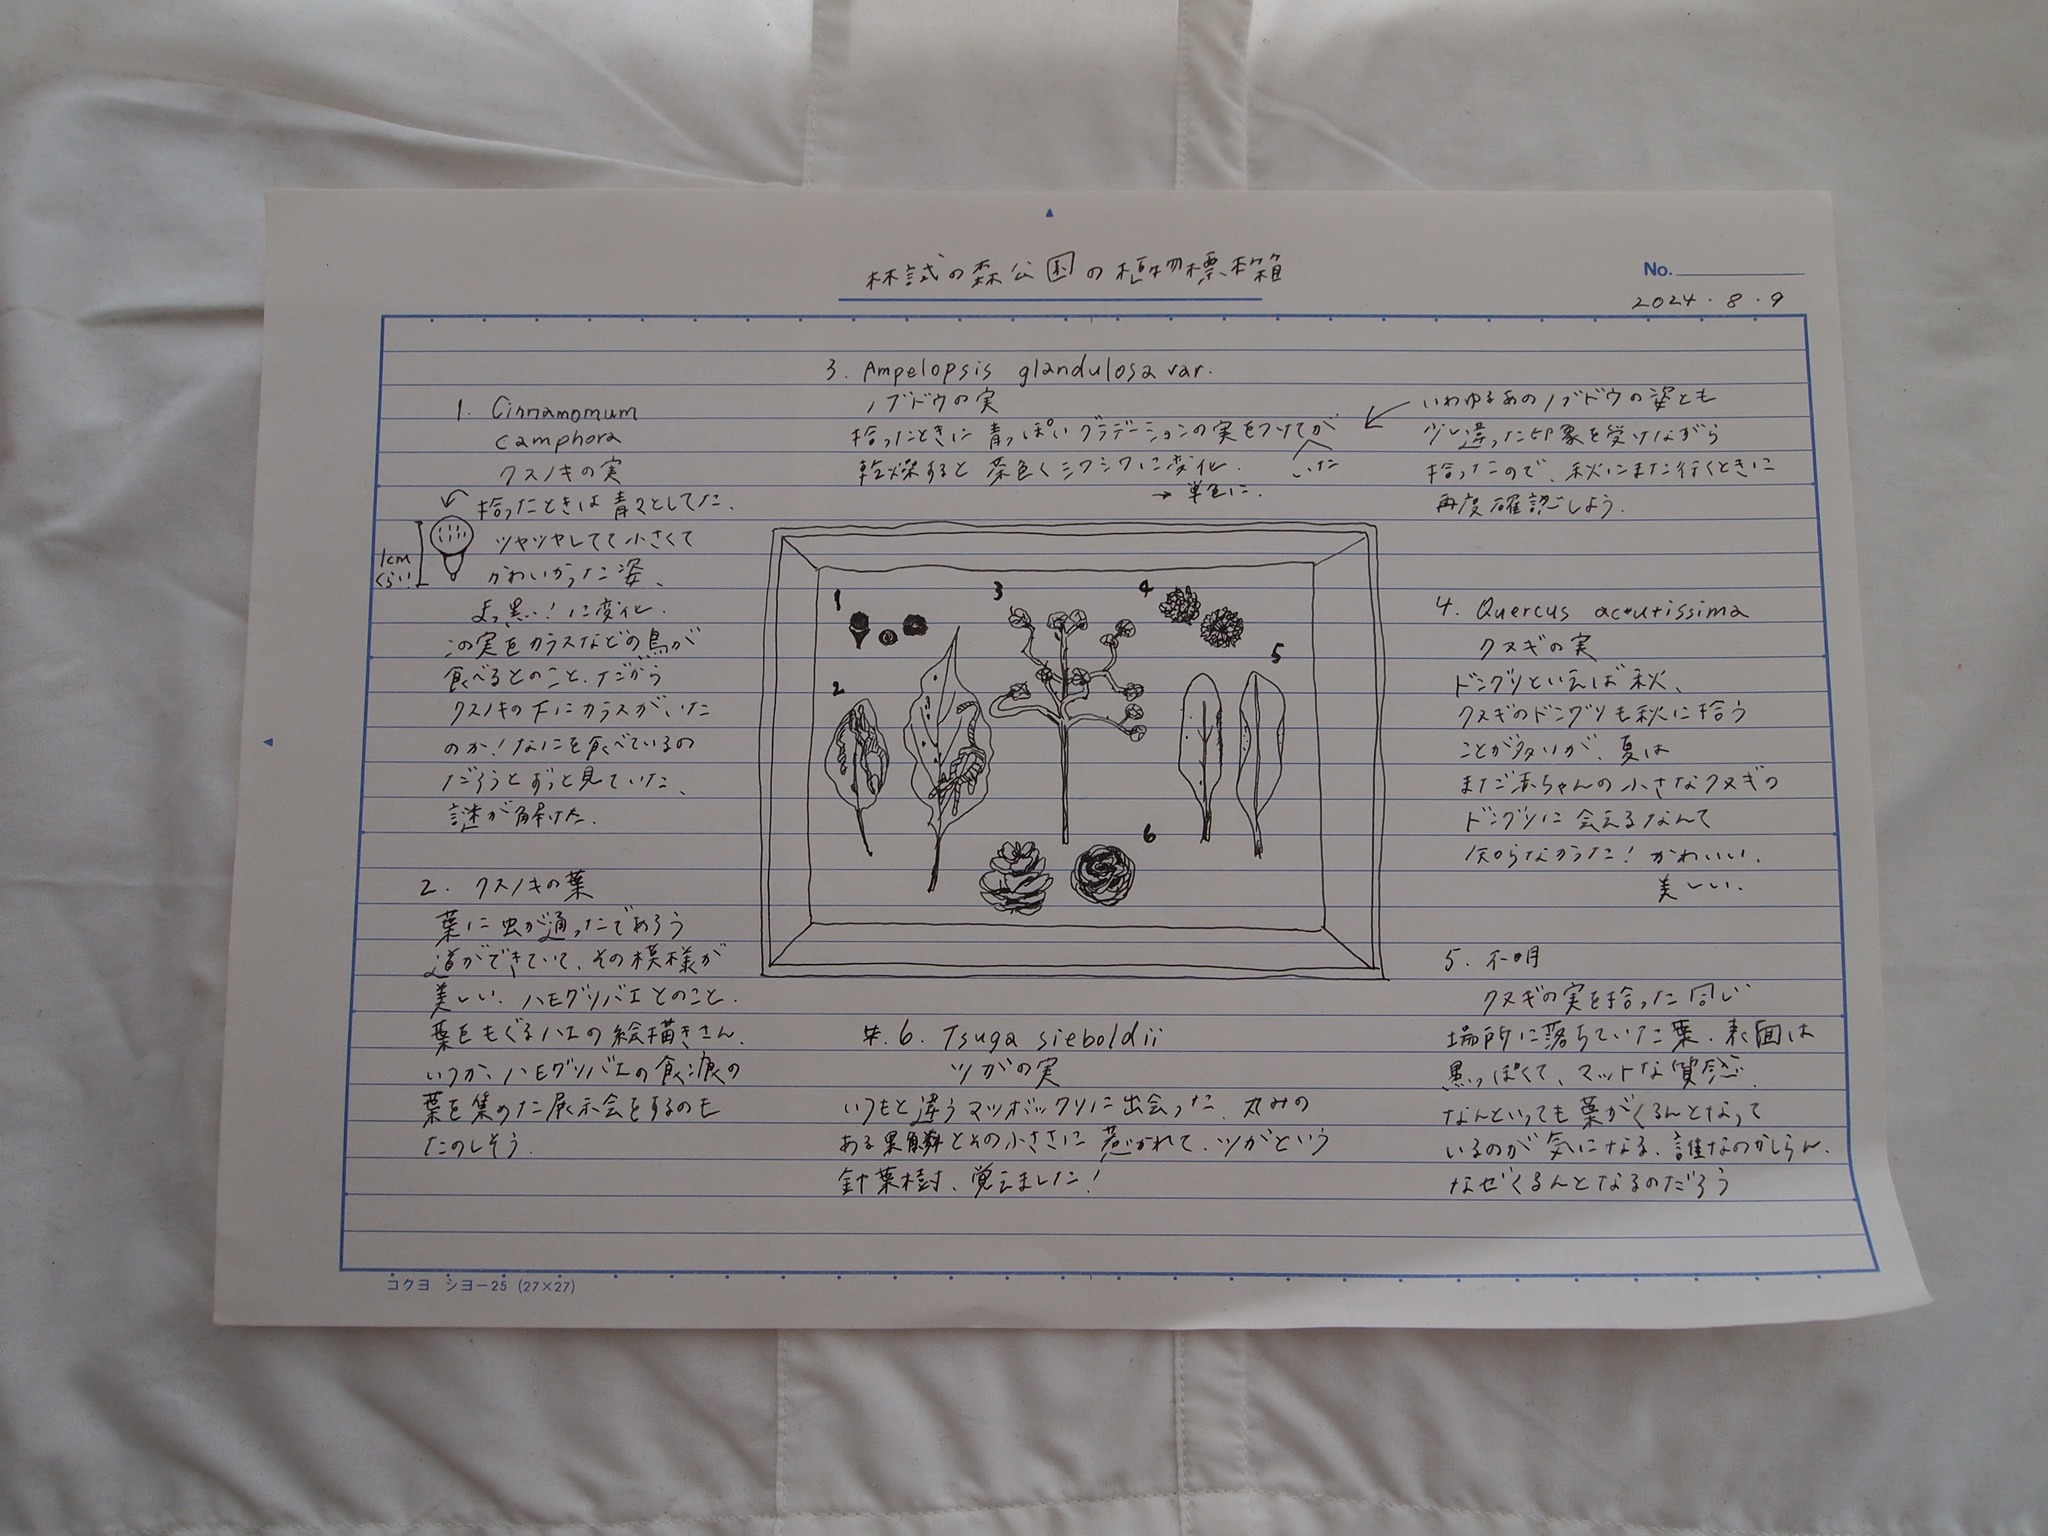 林試の森公園の植物標本箱
No.
2024.8.9
1. Cinnamomum
camphora
クスノキの実
拾ったときは青々としてた、
ツヤツヤしてて小さくて
かわいかった姿、
1cm
くらい!
まっ黒!に変化.
この実をカラスなどの鳥が
食べるとのこと、だから
クスノキの下にカラスがいた
のか!なにを食べているの
だろうとずっと見ていた、
謎が解けた.
2. クスノキの葉
葉に虫が通ったであろう
道ができていて、その模様が
美しい、ハモグリバエとのこと.
葉をもぐるハエの絵描きさん.
いつか、ハモグリバエの食痕の
葉を集めた展示会をするのも
たのしそう.
3. Ampelopsis glandulosa var.
ノブドウの実
拾ったときに青っぽいグラデーションの実をつけてが
いた
乾燥すると茶色くシワシワに変化.
→ 単色に.
いわゆるあのノブドウの姿とも
少し違った印象を受けながら
拾ったので、秋にまた行くときに
再度確認しよう.
1
2
3
4
5
6
4. Quercus acutissima
クヌギの実
ドングリといえば秋、
クヌギのドングリも秋に拾う
ことが多いが、夏は
まだ赤ちゃんの小さなクヌギの
ドングリに会えるなんて
知らなかった! かわいい、
美しい、
5. 不明
クヌギの実を拾った同じ
場所に落ちていた葉、表面は
黒っぽくて、マットな質感、
なんといっても葉がくるんとなって
いるのが気になる、誰なのかしらん、
なぜくるんとなるのだろう
6. Tsuga sieboldii
ツガの実
いつもと違うマツボックリに出会った、丸みの
ある果鱗とその小ささに惹かれて、ツガという
針葉樹、覚えました!
コクヨ シヨー25 (27×27)